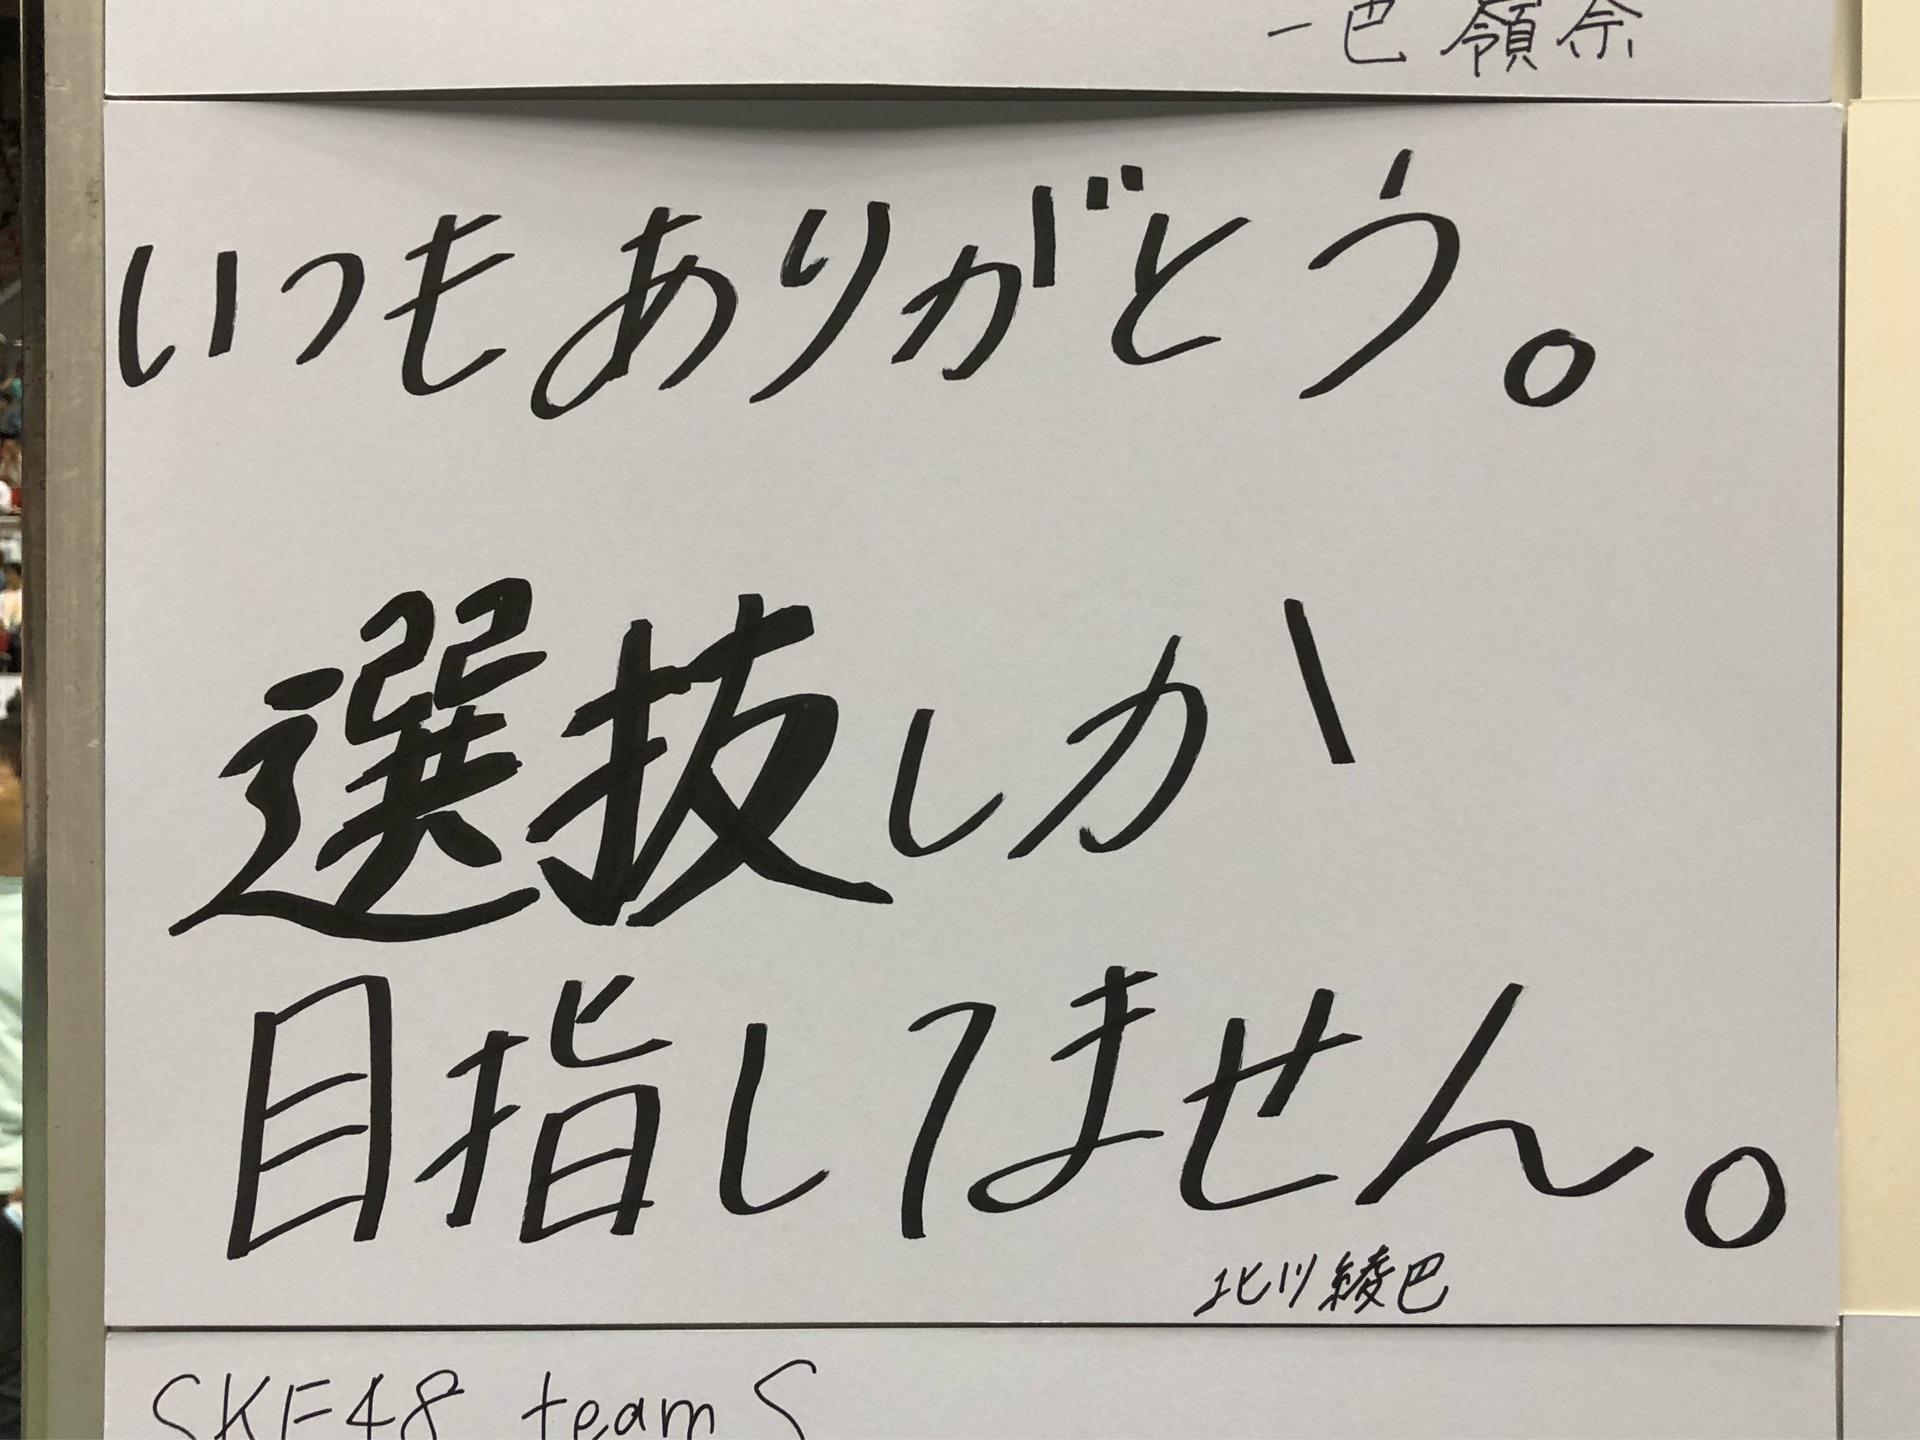 一色嶺奈
いつもありがとう。
選抜しか
目指してません。
北川綾巴
SKE48 team S